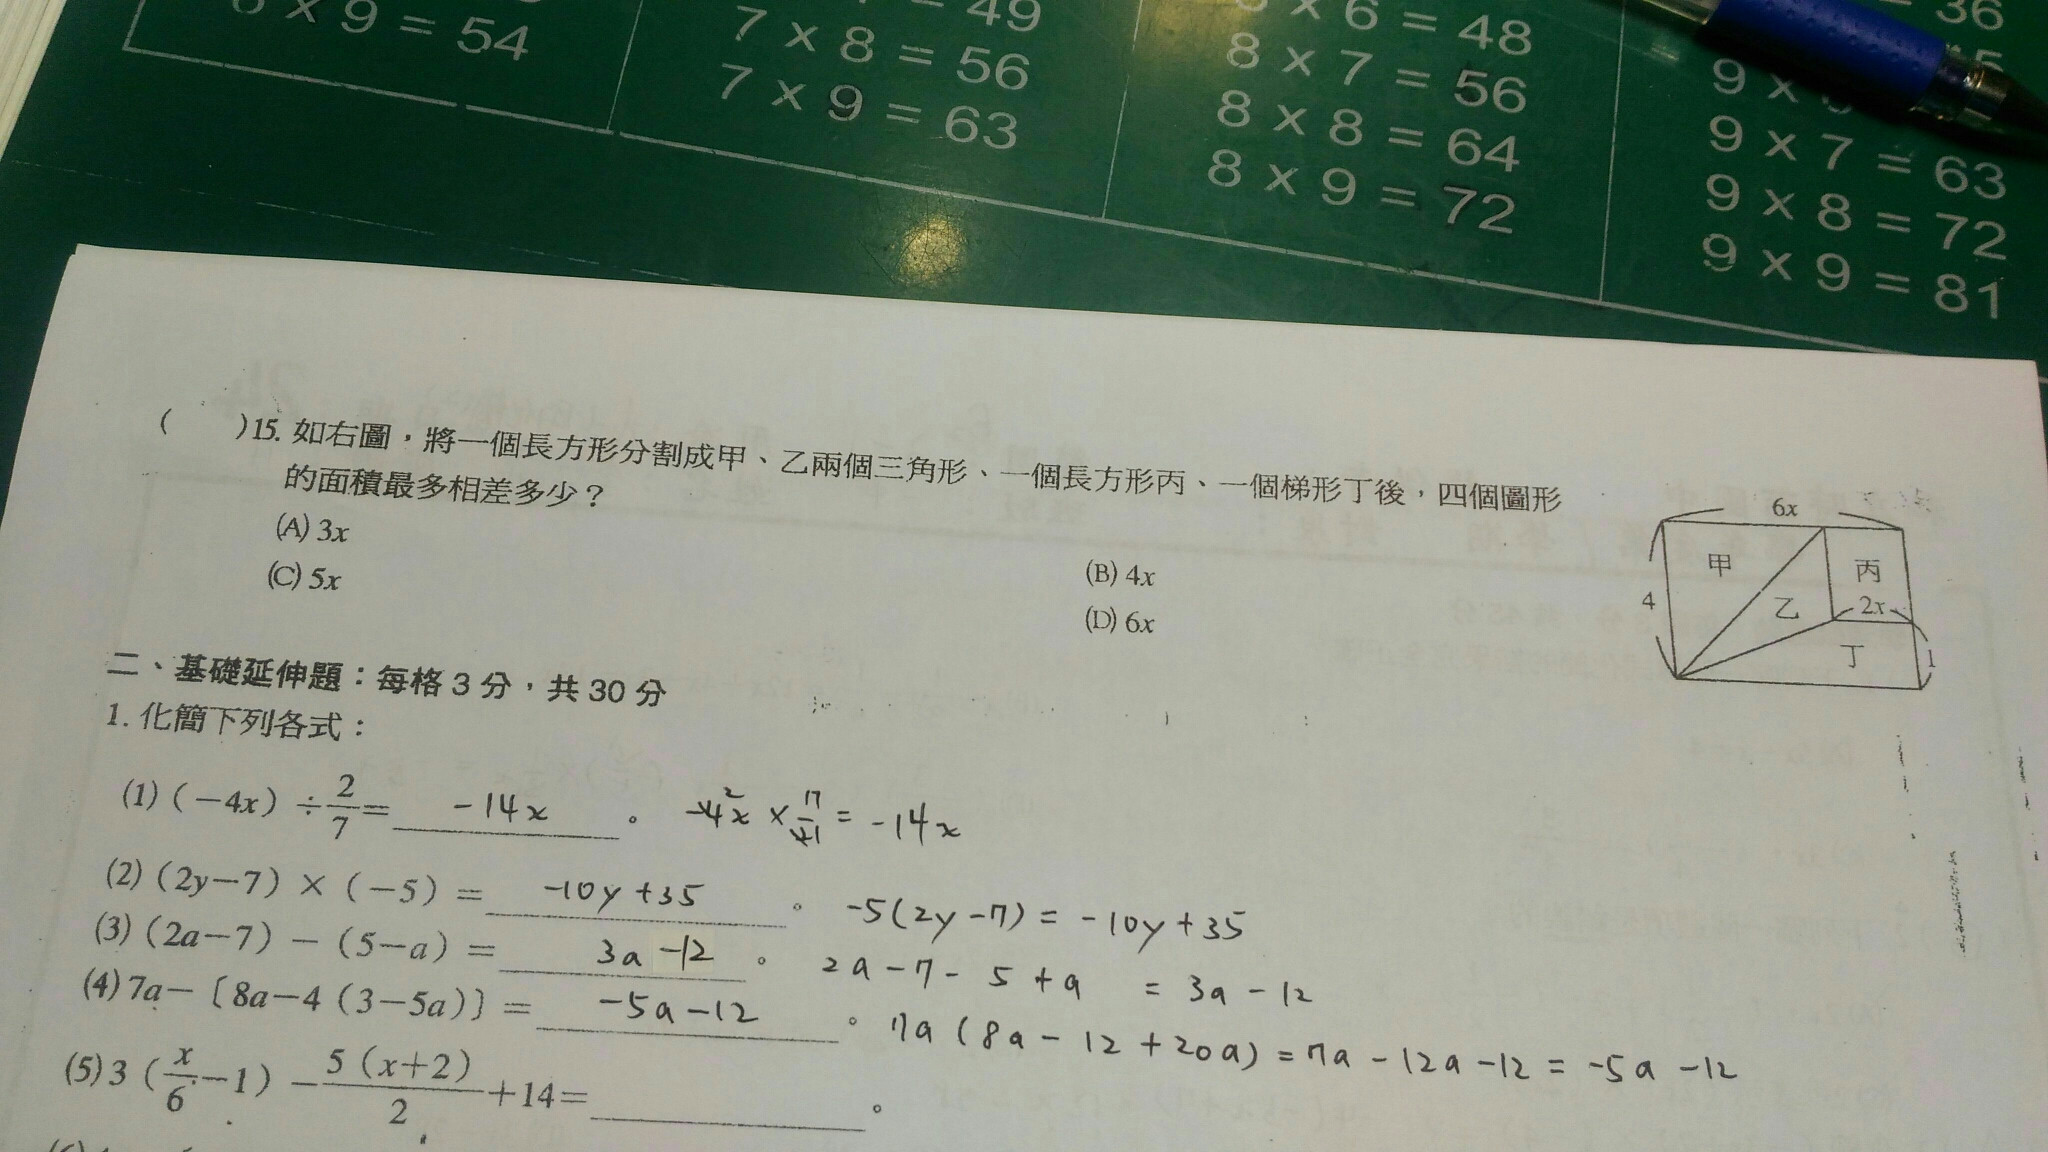 × 9 = 54
= 49
7 × 8 = 56
7 × 9 = 63
× 6 = 48
8 × 7 = 56
8 × 8 = 64
8 × 9 = 72
= 36
9 ×
9 × 7 = 63
9 × 8 = 72
9 × 9 = 81
( )15. 如右圖，將一個長方形分割成甲、乙兩個三角形、一個長方形丙、一個梯形丁後，四個圖形
的面積最多相差多少？
(A) 3x
(B) 4x
(C) 5x
(D) 6x
6x
甲
丙
4
乙
2x
丁
1
二、基礎延伸題：每格 3 分，共 30 分
1. 化簡下列各式：
(1) (－4x) ÷ 2/7 = -14x 。 -4x² × 7/2 1 = -14x
(2) (2y－7) × (－5) = -10y+35 。 -5(2y-7) = -10y+35
(3) (2a－7) － (5－a) = 3a-12 。 2a-7-5+a = 3a-12
(4) 7a－〔8a－4 (3－5a)〕= -5a-12 。 7a(8a-12+20a) = 7a-12a-12 = -5a-12
(5) 3 (x/6－1) － 5 (x+2)/2 +14= 。